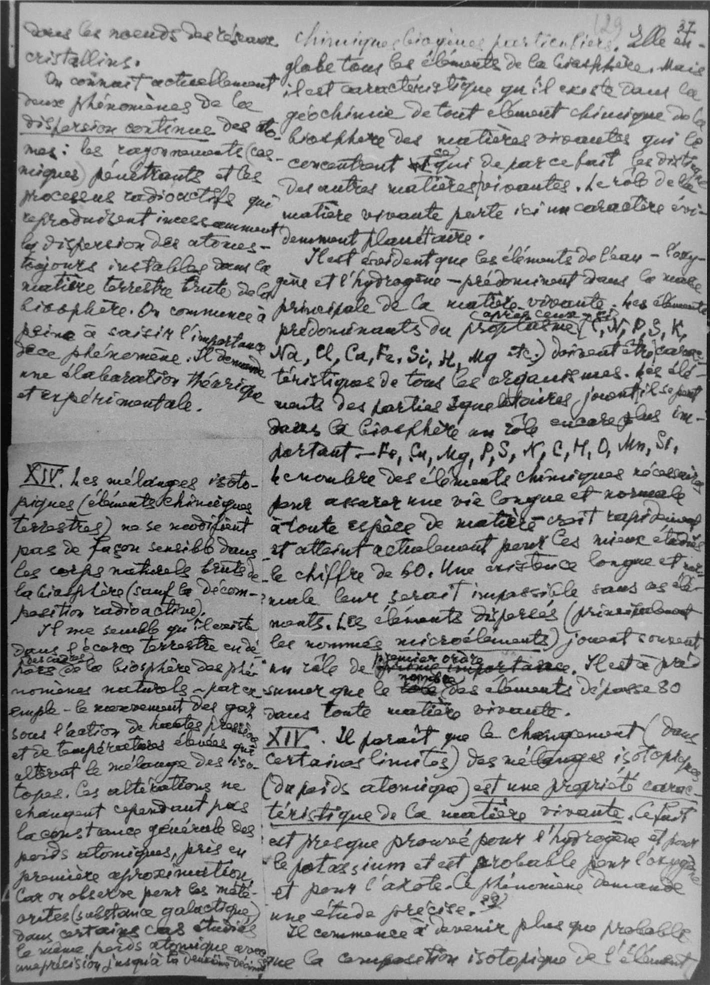 dans les noeuds des réseaux
cristallins.
On connait actuellement
deux phénomènes de la
dispersion continue des ato-
mes: les rayonnements (cos-
miques) pénétrants et les
processus radioactifs qui
reproduisent incessamment
la dispersion des atomes -
toujours instables dans la
matière terrestre brute de la
biosphère. On commence à
peine à saisir l'importance
de ce phénomène. Il demande
une élaboration théorique
et expérimentale.
XIV. Les mélanges isoto-
piques (éléments chimiques
terrestres) ne se modifient
pas de façon sensible dans
les corps naturels bruts de
la biosphère (sauf la décom-
position radioactive).
Il me semble qu'il existe
dans l'écorce terrestre en de-
hors de la biosphère des phé-
nomènes naturels - par ex-
emple - le mouvement des gaz
sous l'action de hautes pressions
et de températures élevées qui
altèrent le mélange des iso-
topes. Ces altérations ne
changent cependant pas
la constance générale des
poids atomiques, pris en
première aproximation
Car on observe pour les météo-
orites (substance galactique)
dans certains cas étudiés
le même poids atomique avec
une précision jusqu'à la deuxième décimale
129 37
chimiques biogènes particuliers. Elle en-
globe tous les éléments de la biosphère. Mais
il est caractéristique qu'il existe dans la
géochimie de tout élément chimique de la
biosphère des matières vivantes qui le
concentrent et qui de par ce fait les distingue
des autres matières vivantes. Le rôle de la
matière vivante porte ici un caractère évi-
demment planétaire.
Il est évident que les éléments de l'eau - l'oxy-
gène et l'hydrogène - prédominent dans la masse
principale de la matière vivante. Les éléments
prédominants du proptasme (après ceux-ci)
(C, N, P, S, K,
Na, Cl, Ca, Fe, Si, H, Mg etc.) doivent être carac-
téristiques de tous les organismes. Les élé-
ments des parties squelettaires jouent, il se peut
dans la biosphère un rôle encore plus im-
portant - Fe, Ca, Mg, P, S, N, C, H, O, Mn, Si.
Le nombre des éléments chimiques nécessaires
pour assurer une vie longue et normale
à toute espèce de matière croit rapidement
et atteint actuellement pour les mieux étudiés
le chiffre de 60. Une existence longue et nor-
male leur serait impossible sans ces élé-
ments. Les éléments dispersés (principalement
les nommés microéléments) jouent souvent
un rôle de premier ordre. Il est à pré-
sumer que le nombre des éléments dépasse 80
dans toute matière vivante.
XIV. Il parait que le changement (dans
certaines limites) des mélanges isotopiques
(du poids atomique) est une propriété carac-
téristique de la matière vivante. Ce fait
est presque prouvé pour l'hydrogène et pour
le potassium et est probable pour l'oxygène
et pour l'azote. Ce phénomène demande
une étude précise.
Il commence à devenir plus que probable
que la composition isotopique de l'élément